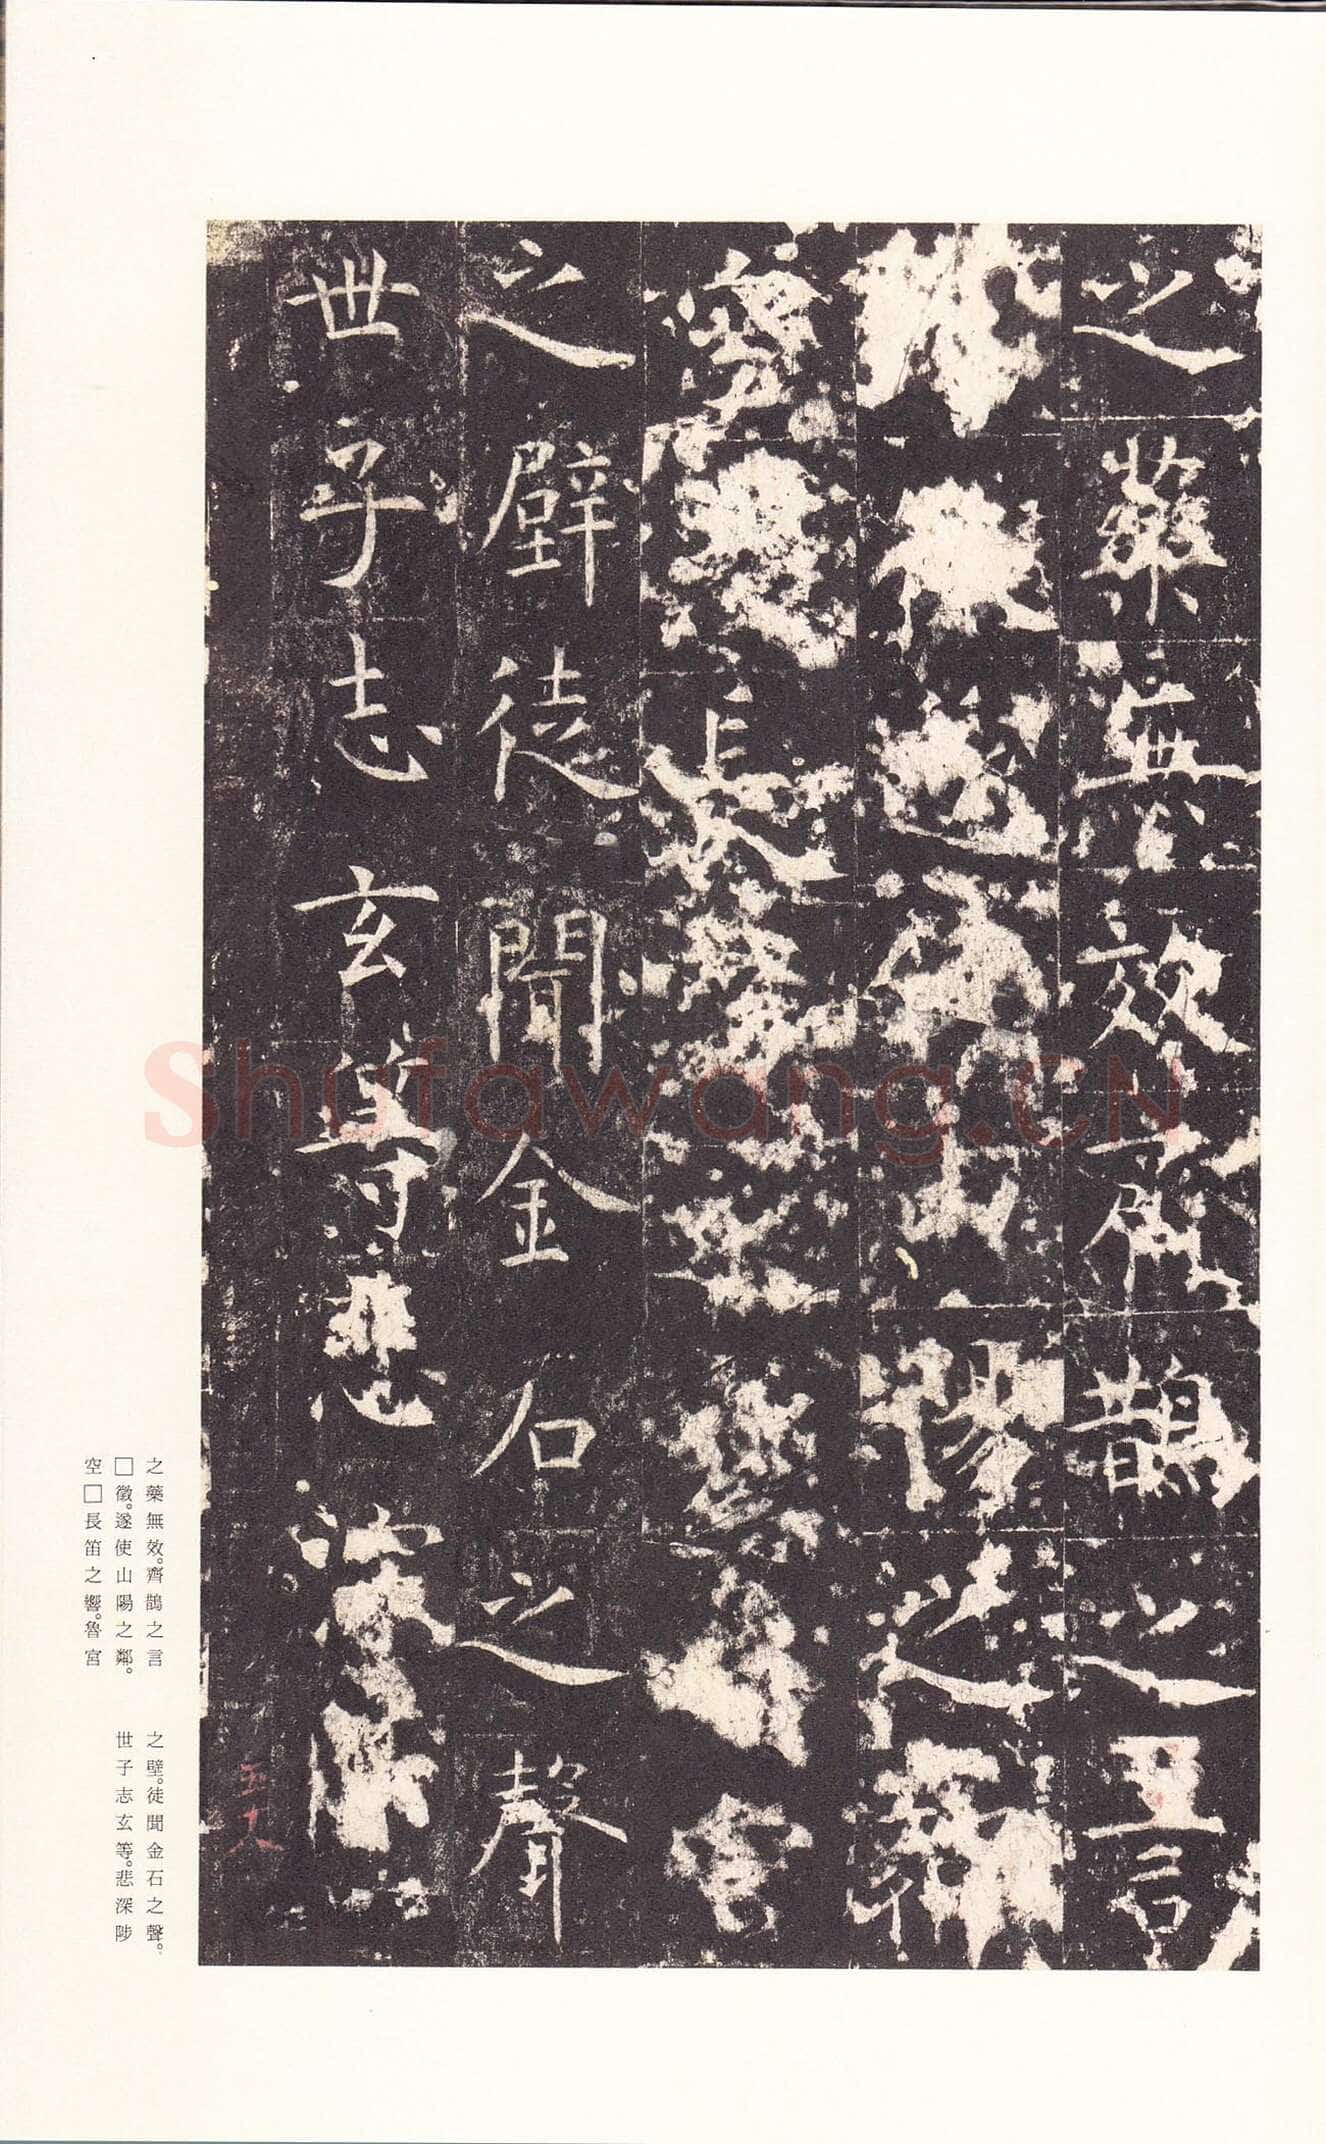 之藥無效齊鵲之言
徵遂使山陽之鄰
空長笛之響魯宮
之壁徒聞金石之聲
世子志玄等悲深陟
Shufawang.CN
之藥無效。齊鵲之言
□徵。遂使山陽之鄰。
空□長笛之響。魯宮
之壁。徒聞金石之聲。
世子志玄等。悲深陟